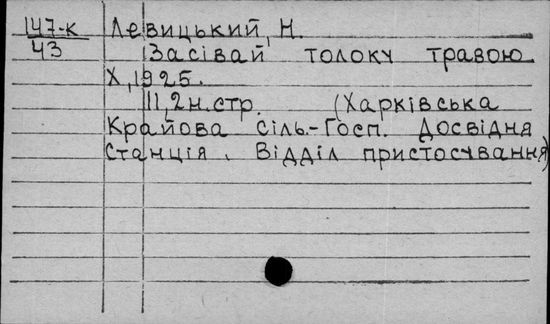 147-к Левицький, Н.
43 Засівай толоку травою
Х, 1925.
11, 2 н.стр. (Харківська
Крайова Сіль.-Госп. Досвідня
Станція. Відділ пристосування)